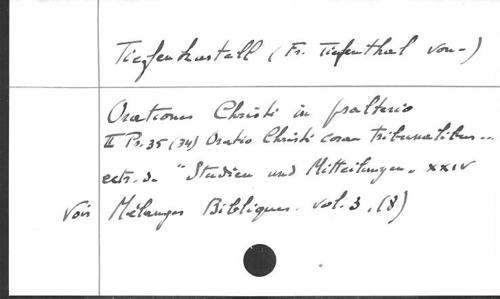 Tiefenkastell (Fr. Tiefenthal von-)
Orationes Christi in psalterio
II Ps. 35 (34) Oratio Christi coram tribunalibus...
extr. d. "Studien und Mitteilungen" XXIV
Voir Mélanges Bibliques. vol. 3, (8)